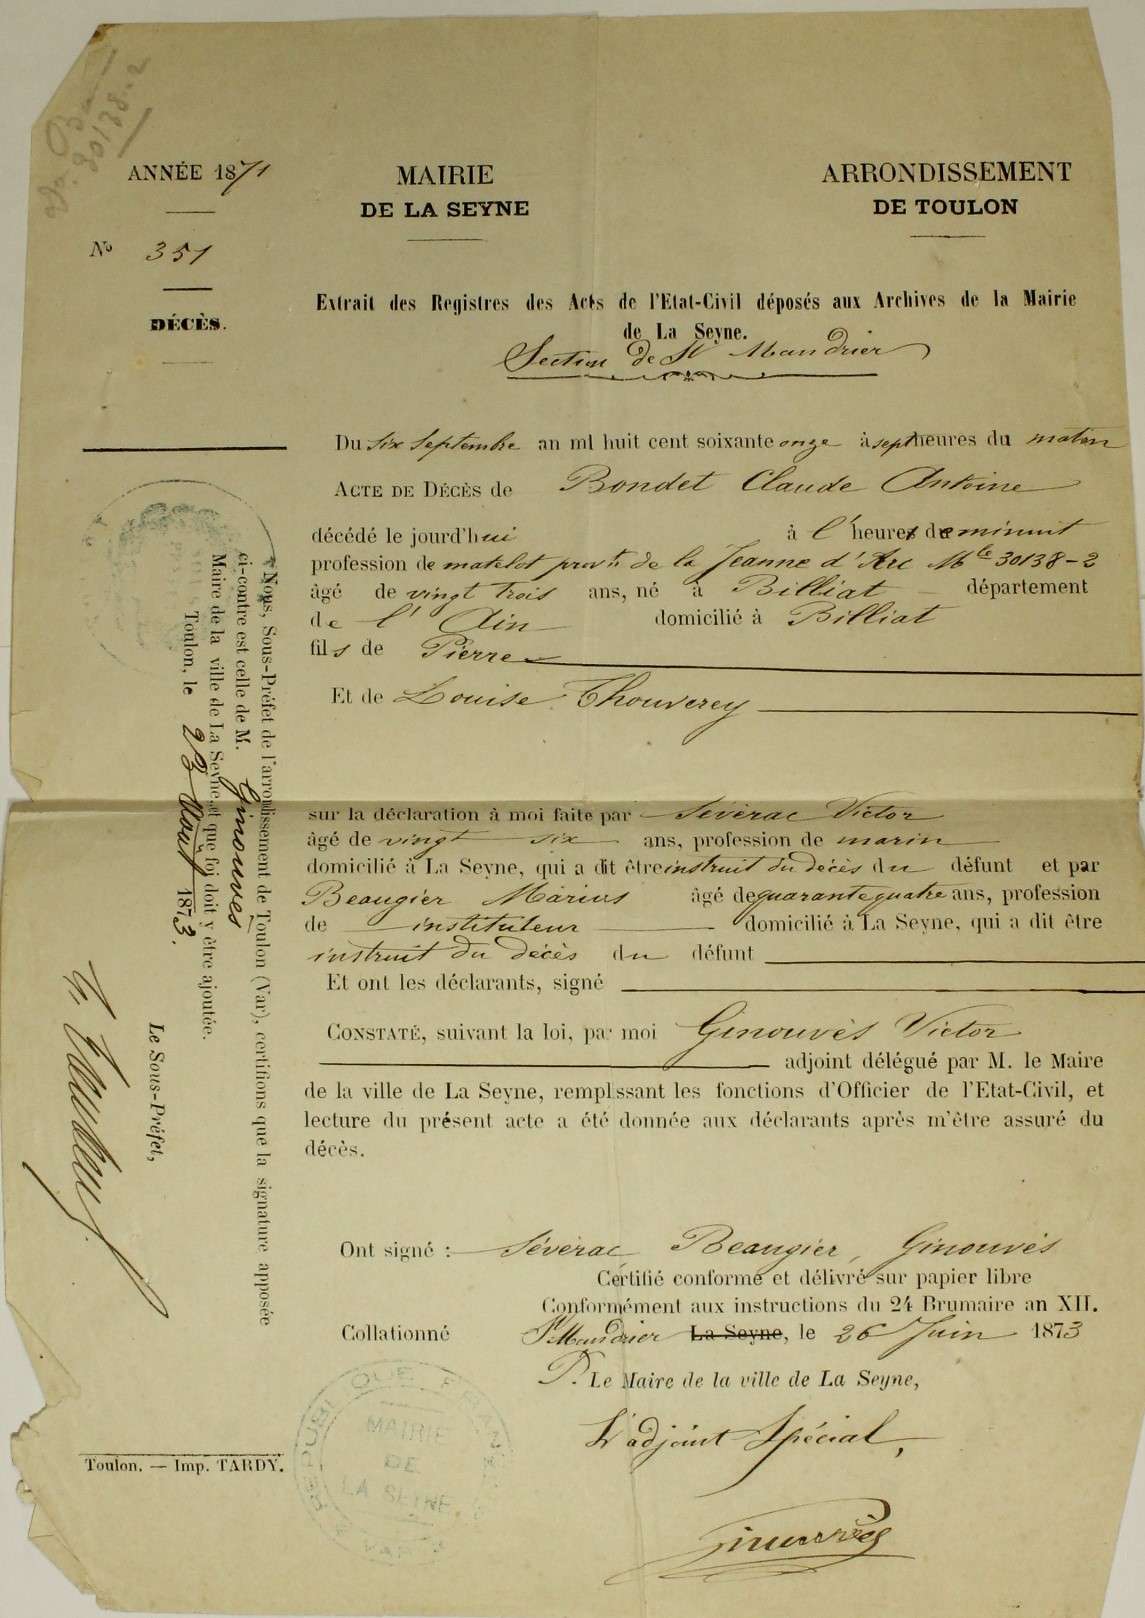 30138-2
ANNÉE 1871
MAIRIE
DE LA SEYNE
ARRONDISSEMENT
DE TOULON
No 351
DÉCÈS.
Extrait des Registres des Acts de l'Etat-Civil déposés aux Archives de la Mairie
de La Seyne.
Section de St Mandrier
Du six Septembre an mil huit cent soixante onze à sept heures du matin
ACTE DE DÉCÈS de Bondet Claude Antoine
décédé le jourd'hui à l'heure de minuit
profession de matelot provt de la Jeanne d'Arc Mle 30138-2
âgé de vingt trois ans, né à Billiat département
de l'Ain domicilié à Billiat
fils de Pierre
Et de Louise Thouverey
sur la déclaration à moi faite par Séverac Victor
âgé de vingt six ans, profession de marin
domicilié à La Seyne, qui a dit être instruit du décès du défunt et par
Beaugier Marius âgé de quarante quatre ans, profession
de instituteur domicilié à La Seyne, qui a dit être
instruit du décès du défunt
Et ont les déclarants, signé
CONSTATÉ, suivant la loi, par moi Ginouvès Victor
adjoint délégué par M. le Maire
de la ville de La Seyne, remplissant les fonctions d'Officier de l'Etat-Civil, et
lecture du présent acte a été donnée aux déclarants après m'être assuré du
décès.
Ont signé : Séverac Beaugier, Ginouvès
Certifié conforme et délivré sur papier libre
Conformément aux instructions du 24 Brumaire an XII.
Collationné St Mandrier La Seyne, le 26 Juin 1873
P. Le Maire de la ville de La Seyne,
L'adjoint Spécial,
Ginouvès
REPUBLIQUE FRANÇAISE
MAIRIE
DE
LA SEYNE
VAR
Toulon. — Imp. TARDY.
Nous, Sous-Préfet de l'arrondissement de Toulon (Var), certifions que la signature apposée
ci-contre est celle de M. Ginouves
Maire de la ville de La Seyne et que foi doit y être ajoutée.
Toulon, le 23 Août 1873.
Le Sous-Préfet,